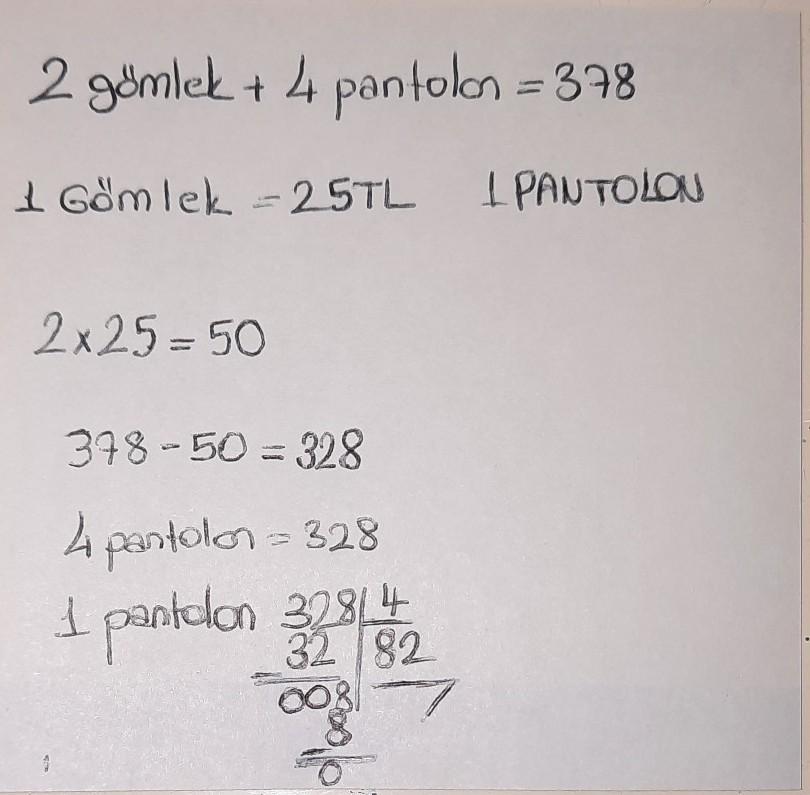 2 gömlek + 4 pantolon = 378
1 Gömlek = 25TL 1 PANTOLON
2x25 = 50
378 - 50 = 328
4 pantolon = 328
1 pantolon 328 4
- 32 82
008
- 8
0